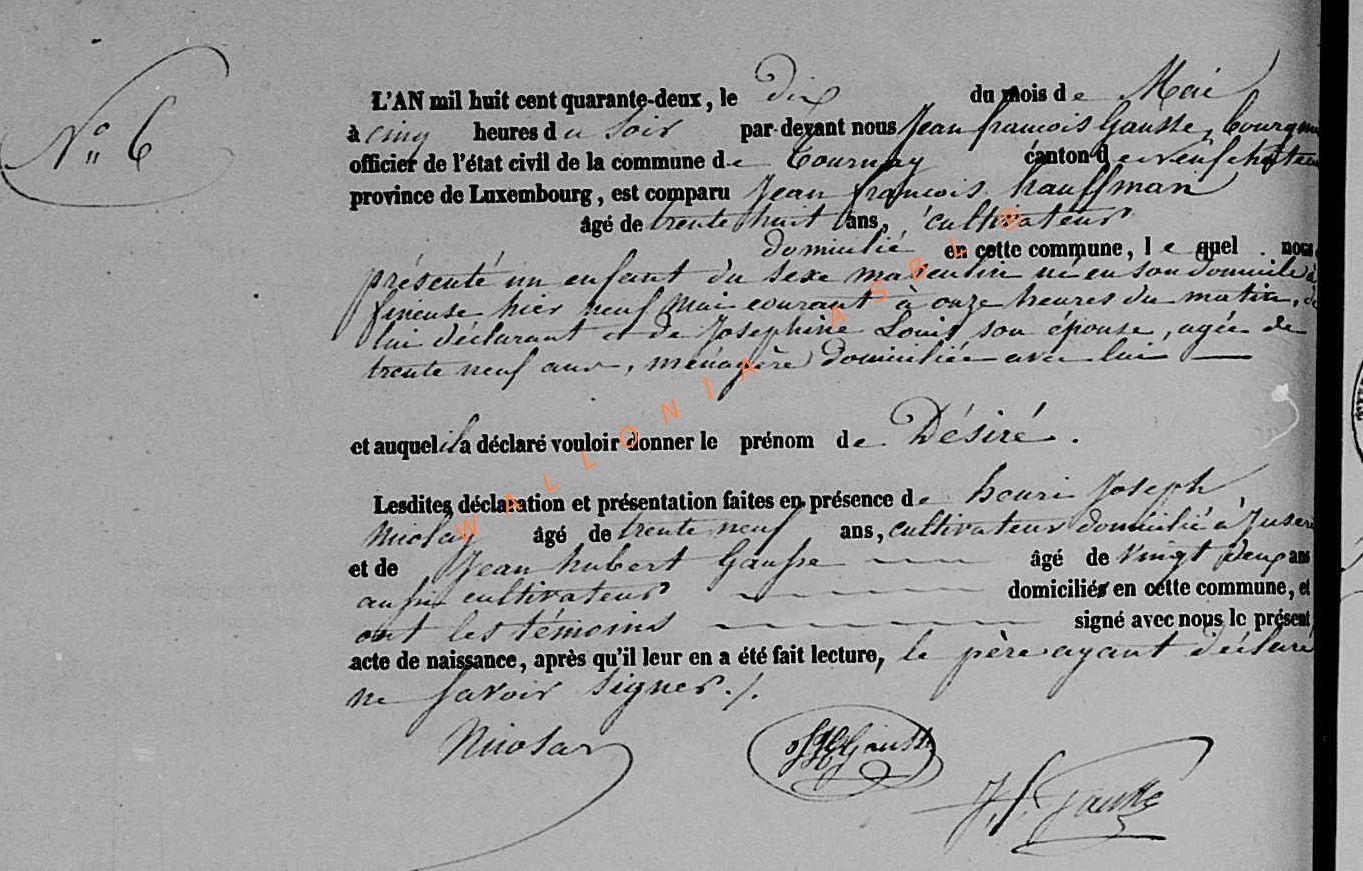 N° 6
L'AN mil huit cent quarante-deux, le dix du mois de Mai
à cinq heures du soir par-devant nous Jean françois Gausse,
officier de l'état civil de la commune de Tournay canton de neufchâteau
province de Luxembourg, est comparu Jean françois hauffman
âgé de trente huit ans, cultivateur
domicilié en cette commune, lequel nous
présenté un enfant du sexe masculin né en son domicile à
hier neuf Mai courant à onze heures du matin, de
lui déclarant et de Joséphine Louis son épouse, agée de
trente neuf ans, ménagère domiciliée avec lui
et auquel il a déclaré vouloir donner le prénom de Désiré.
Lesdites déclaration et présentation faites en présence de henri Joseph
âgé de trente neuf ans, cultivateur domicilié à
et de Jean hubert Gausse âgé de vingt deux ans
aussi cultivateur domiciliés en cette commune, et
ont les témoins signé avec nous le présent
acte de naissance, après qu'il leur en a été fait lecture, le père ayant déclaré
ne savoir signer ./.
JHGausse
J. f. Gausse
WALLONIA ASBL ®